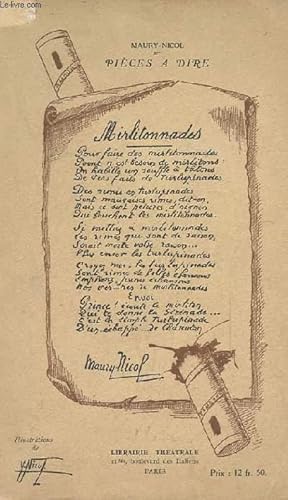 Le-livre.com
MAURY-NICOL
PIÈCES A DIRE
Mirlitonnades
Pour faire des mirlitonnades
Point n'est besoin de mirlitons
On habille un souffle à
De vers faits de Turlupinades
Des rimes en Turlupinades
Sont mauvaises rimes, dit-on,
Mais ce sont
Que touchent les mirlitonnades
Si mettez à mirlitonnades
Des rimes qui sont de raison,
Serait morte votre raison...
Plus encor les turlupinades
Croyez moi, les turlupinades
Sont rimes de folles chansons
Employons, jeunes échansons
Nos à mirlitonnades
Envoi
Prince! le mirliton
Qui te donne la Sérénade...
C'est un simple Turlupinade
D'un échappé de Charenton
Maury Nicol
Illustrations
de
LIBRAIRIE THEATRALE
boulevard des Italiens
PARIS
Prix : 12 fr. 50.